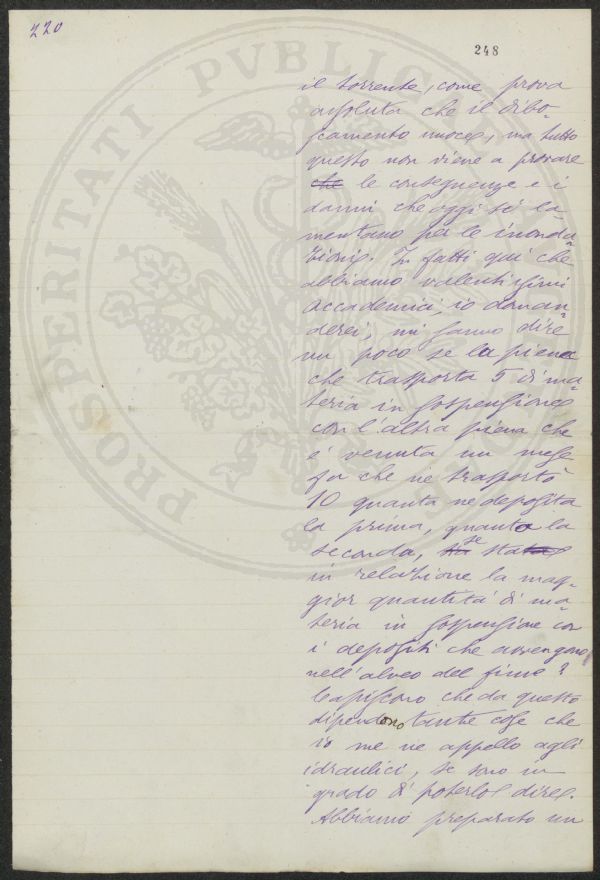 220
248
PROSPERITATI PUBLICAE
il torrente, come prova
assoluta che il disbo-
scamento nuoce, ma tutto
questo non viene a provare
che le conseguenze e i
danni che oggi si la-
mentano per le inonda-
zioni. In fatti qui che
abbiamo valentissimi
Accademici, io doman-
derei, mi fanno dire
un poco se la piena
che trasporta 5 di ma-
teria in sospensione
con l'altra piena che
è venuta un mese
fa che ne trasportò
10 quanta ne deposita
la prima, quanta la
seconda, se sta
in relazione la mag-
gior quantità di ma-
teria in sospensione con
i depositi che avvengono
nell'alveo del fiume?
Capiscono che da questo
dipendono tante cose che
io me ne appello agli
idraulici, se sono in
grado di poterlo dire.
Abbiamo preparato un